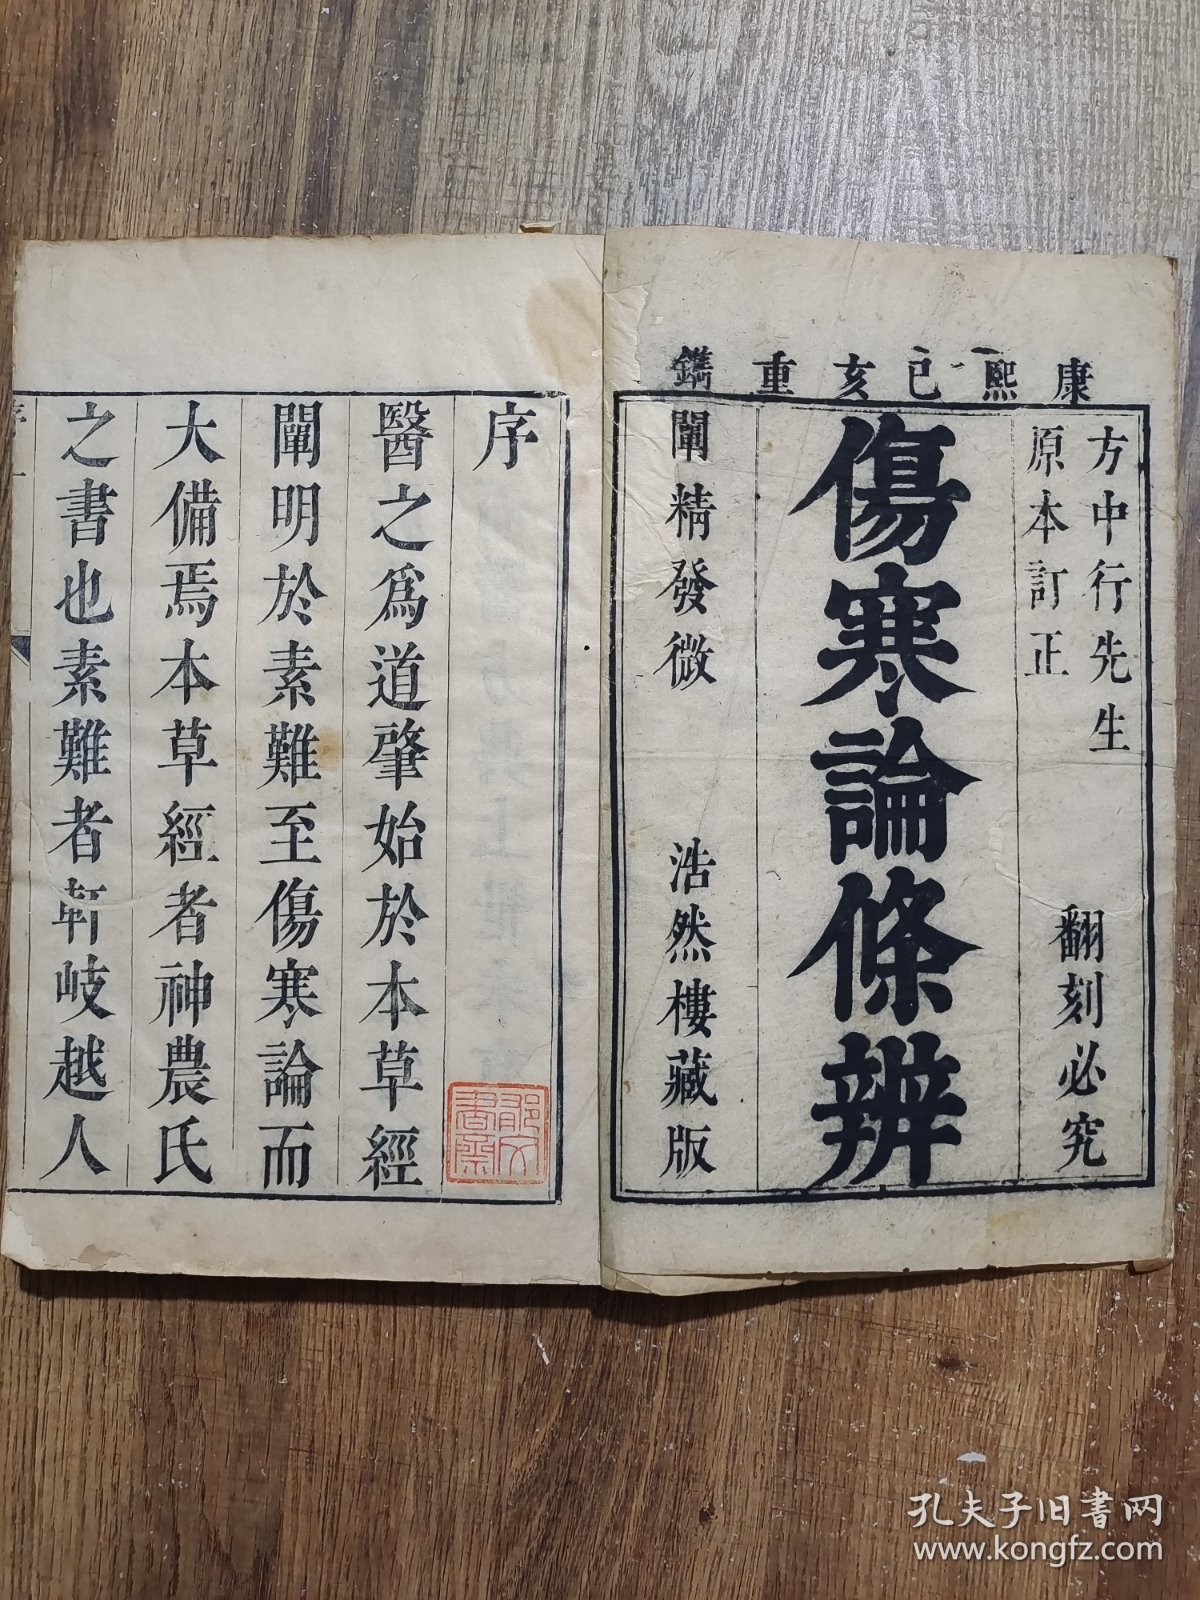 康熙己亥重鐫
方中行先生
原本訂正
翻刻必究
傷寒論條辨
闡精發微
浩然樓藏版
序
醫之爲道肇始於本草經
闡明於素難至傷寒論而
大備焉本草經者神農氏
之書也素難者軒岐越人
孔夫子旧书网
www.kongfz.com